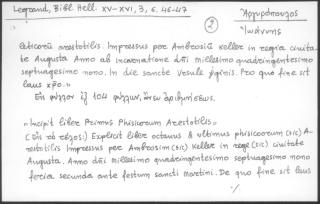 Legrand, Bibl. Hell. XV-XVI, 3, σ. 46-47
② Ἀργυρόπουλος
Ἰωάννης
eticorū arestotilis. Impressus per Ambrosiū Keller in regia civitate
Augusta Anno ab incarnatione dn̄i millesimo quadringentesimo
septuagesimo nono. In die sancte Vesule Pro quo fine sit
laus xp̄o."
Εἰς φύλλον ἐξ 104 φύλλων, ἄνευ ἀριθμήσεως.
«Incipit liber Primus Phisicorum Arestotilis»
(Εἰς τὸ τέλος:) Explicit liber octauus & ultimus phisicoorum (sic) Are-
stotilis Impressus per Ambrosim (sic) Keller in rege (sic) civitate
Augusta. Anno dn̄i millesimo quadringentesimo septuagesimo nono
feria secunda ante festum sancti martini. De quo fine sit laus
%